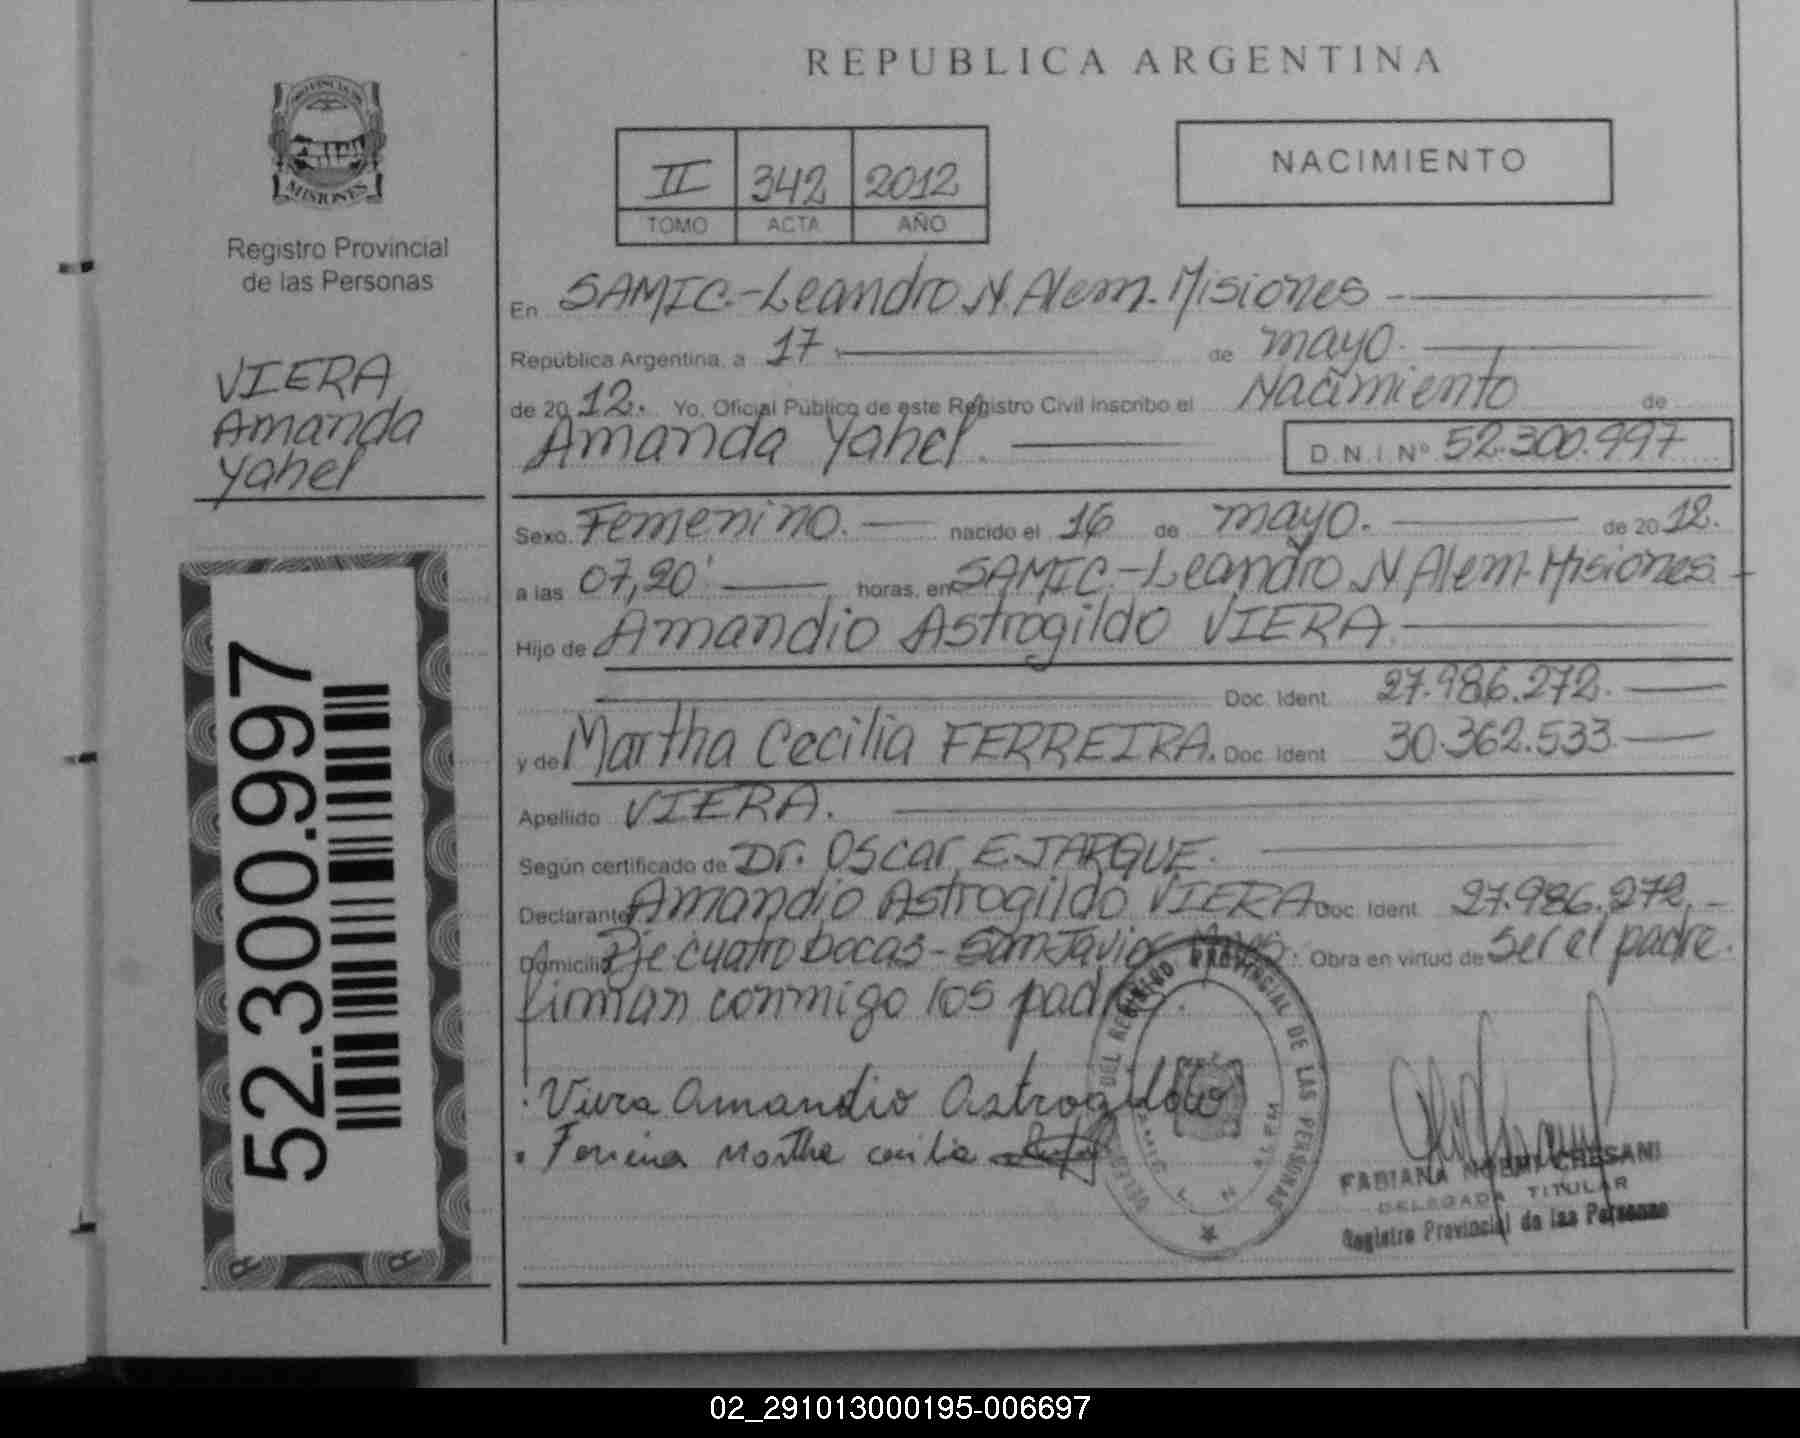 REPUBLICA ARGENTINA
PROVINCIA DE
MISIONES
Registro Provincial
de las Personas
II 342 2012
TOMO ACTA AÑO
NACIMIENTO
VIERA
Amanda
Yahel
52.300.997
En SAMIC.-Leandro N. Alem.-Misiones
República Argentina, a 17 de mayo.
de 2012. Yo, Oficial Público de este Registro Civil inscribo el Nacimiento de
Amanda Yahel. D.N.I. Nº 52.300.997
Sexo Femenino. nacido el 16 de mayo. de 2012.
a las 07,20' horas, en SAMIC.-Leandro N. Alem-Misiones
Hijo de Amandio Astrogildo VIERA
Doc. Ident. 27.986.272.
y de Martha Cecilia FERREIRA. Doc. Ident. 30.362.533.
Apellido VIERA.
Según certificado de Dr. Oscar EJARQUE.
Declarante Amandio Astrogildo VIERA Doc. Ident. 27.986.272.
Domicilio Pje cuatro bocas - San Javier Obra en virtud de Ser el padre.
firman conmigo los padres.
Viera Amandio Astrogildo
Ferreira Martha cecilia
DEL REGISTRO PROVINCIAL DE LAS PERSONAS
FABIANA NOEMI CHESANI
DELEGADA TITULAR
Registro Provincial de las Personas
02_291013000195-006697